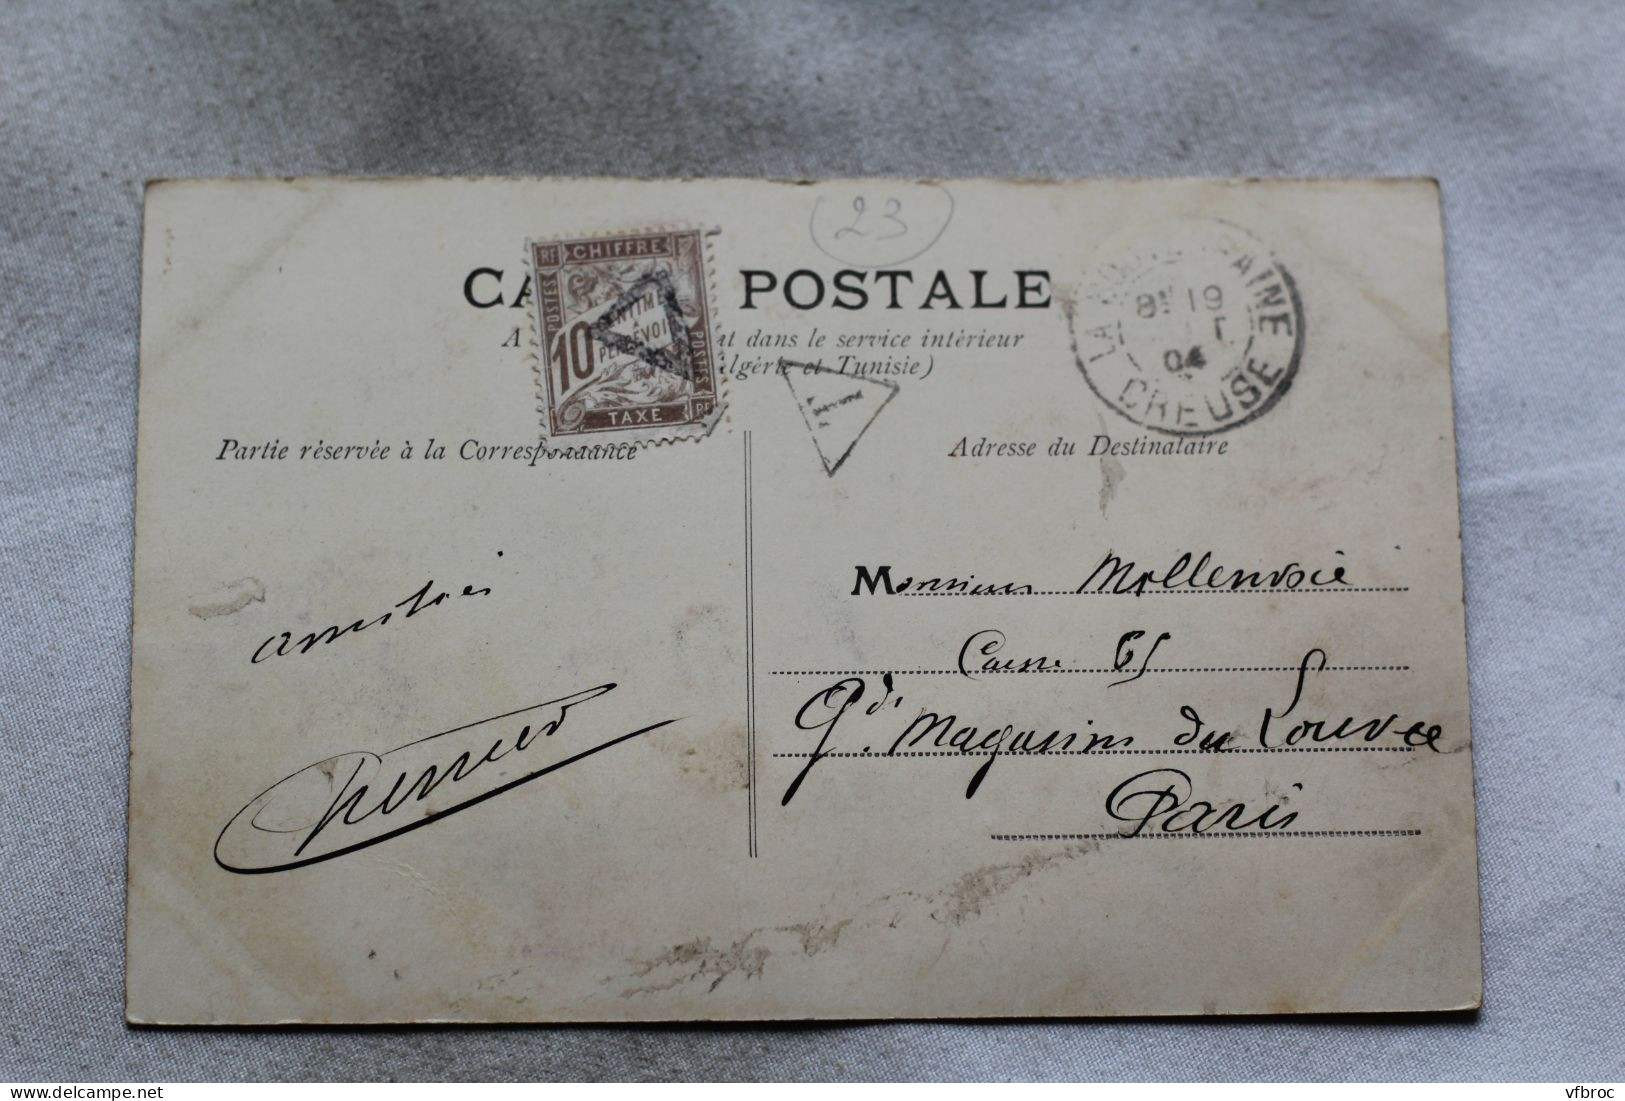 23
CA POSTALE
A t dans le service intérieur
lgérie et Tunisie)
RF CHIFFRE
POSTES
10 CENTIMES
À
PERCEVOIR
POSTES
TAXE RF
8E 19
04
CREUSE
Partie réservée à la Correspondance
Adresse du Destinataire
amitiés
Monsieur
Caisse 65
Gds. Magasins du Louvre
Paris
delcampe.net
vfbroc